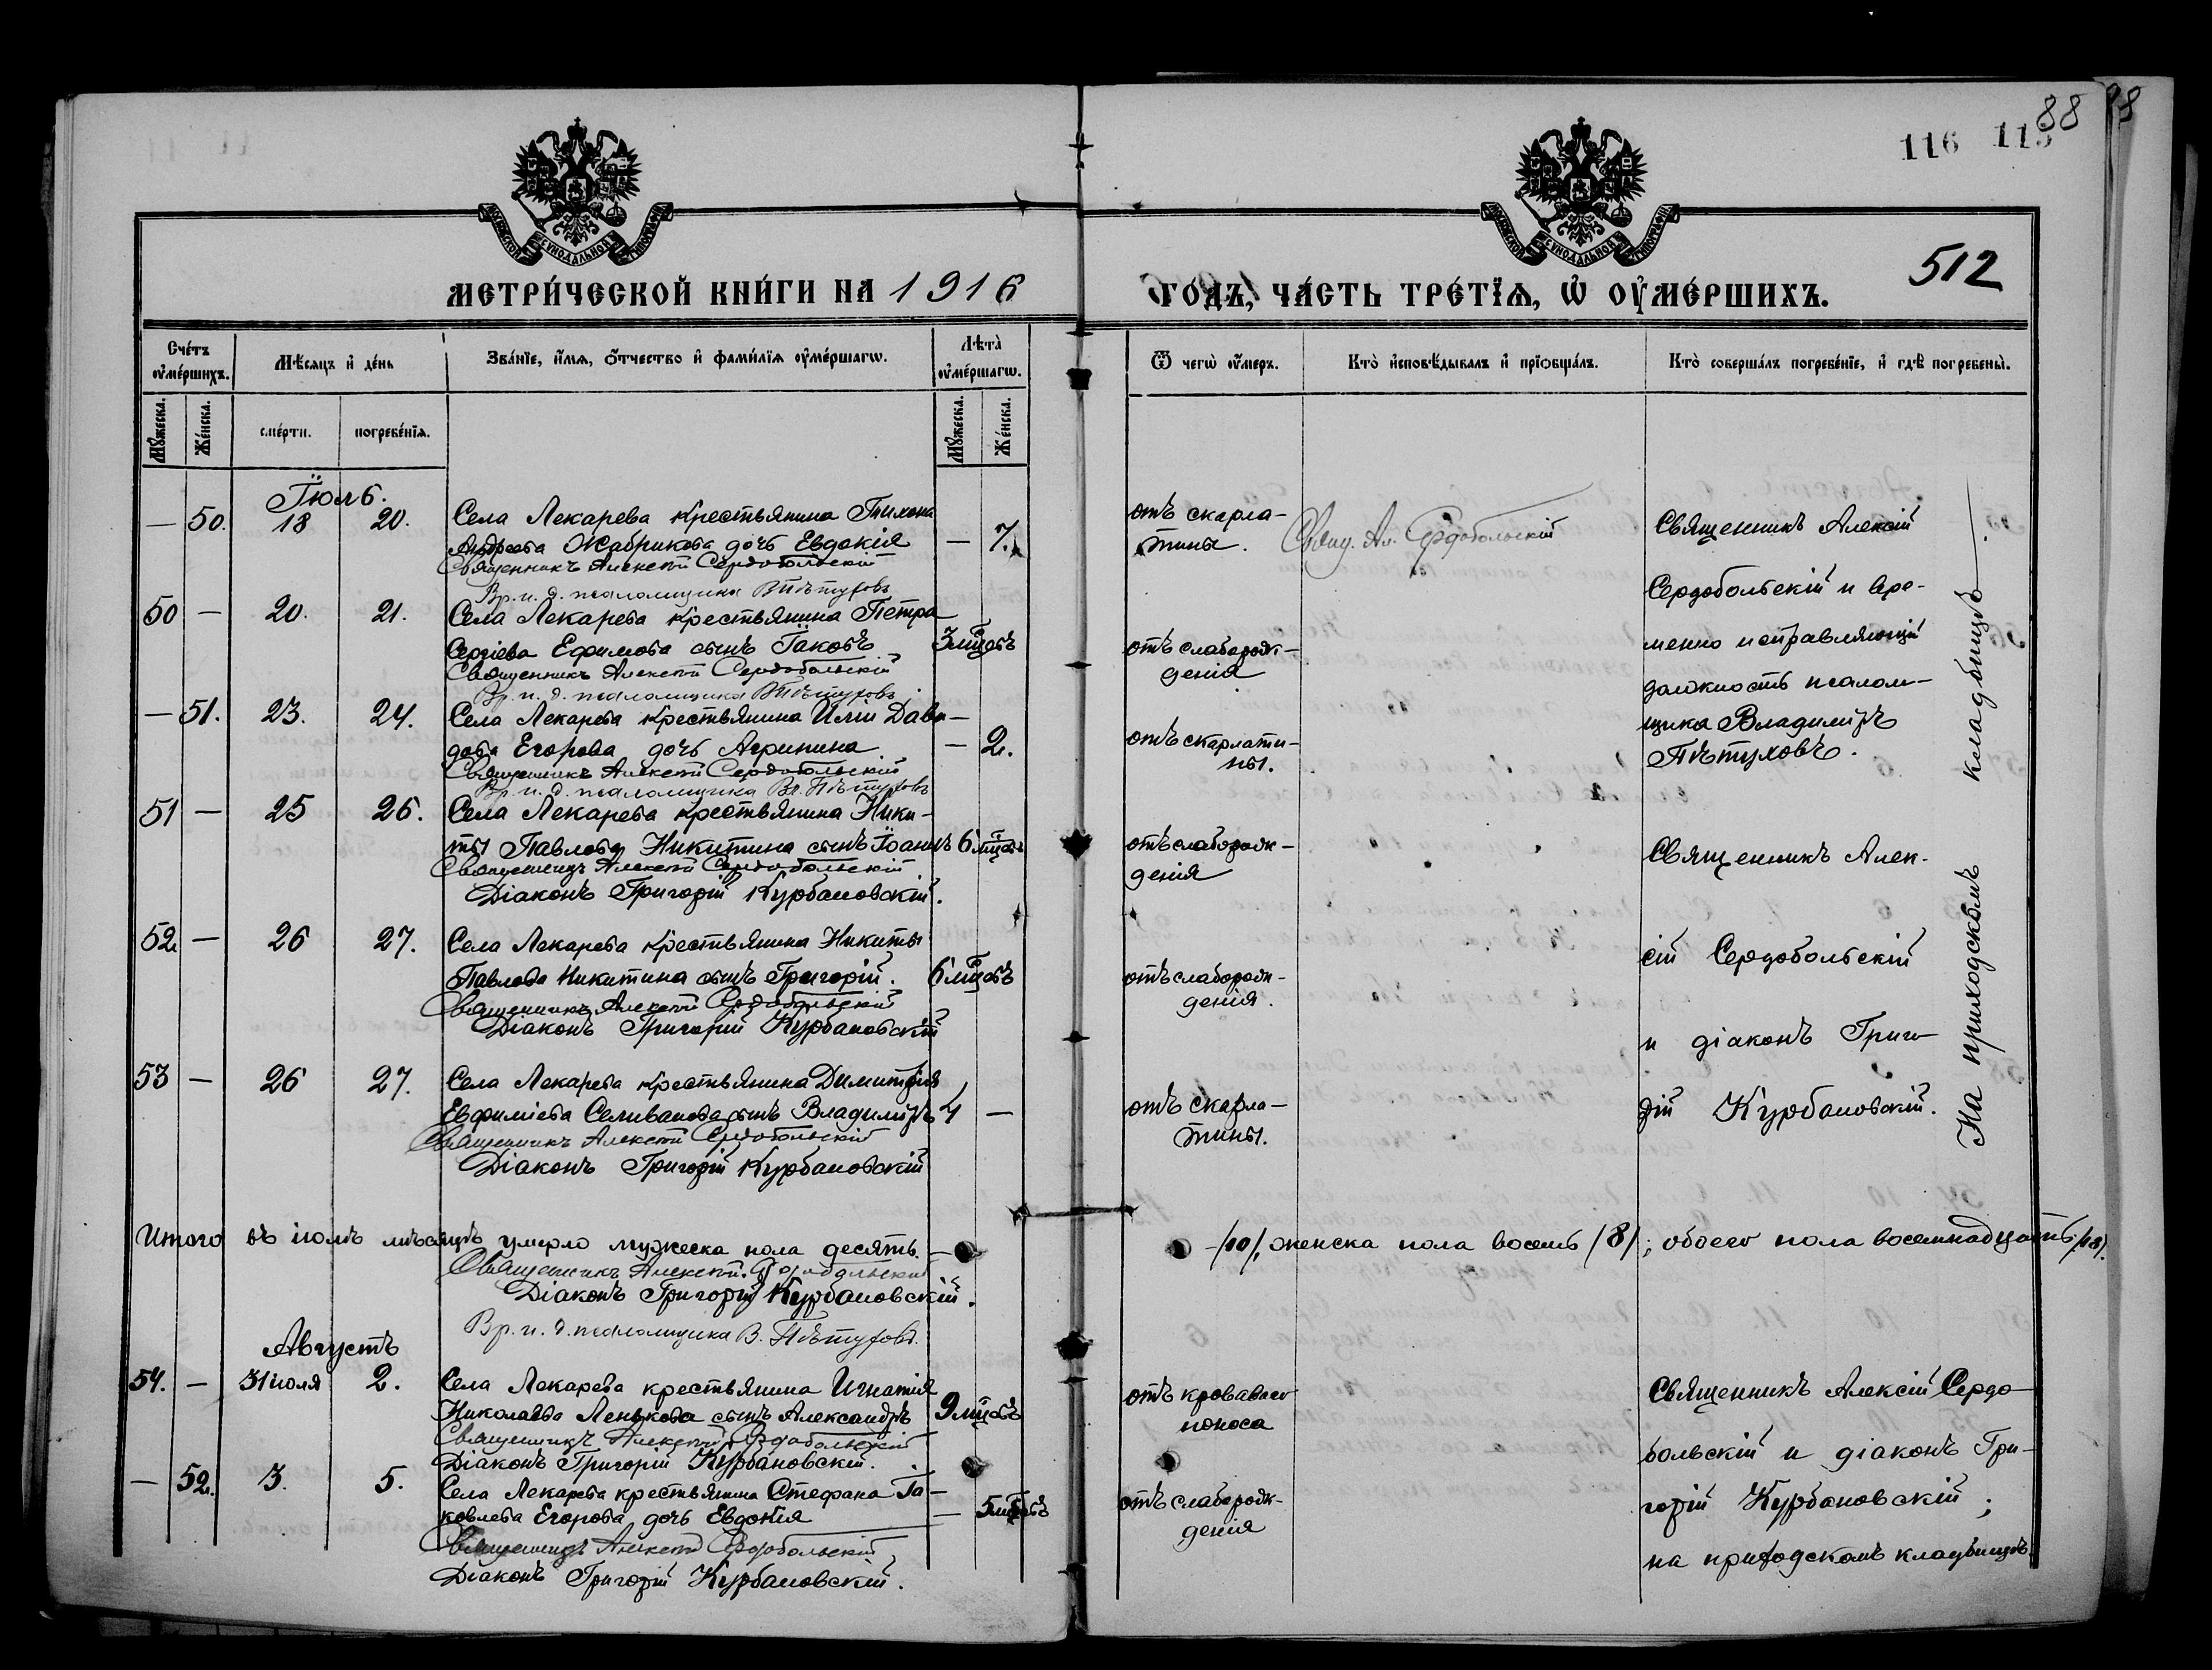 88 98
116 115
512
МЕТРИ́ЧЕСКОЙ КНИ́ГИ НА 1916
ГО́ДЪ, ЧА́СТЬ ТРЕ́ТЇѦ, Ѡ҆ ОУ҆МЕ́РШИХЪ.
Сче́тъ оу҆ме́ршихъ.
Мꙋ́жеска.
Же́нска.
Мѣ́сѧцъ и҆ де́нь
сме́рти.
погребе́нїѧ.
Зва́нїе, и҆́мѧ, ѻ҆́тчество и҆ фами́лїѧ оу҆ме́ршагѡ.
Лѣта̀ оу҆ме́ршагѡ.
Мꙋ́жеска.
Же́нска.
Ѿ чегѡ̀ оу҆́меръ.
Кто̀ и҆сповѣ́дывалъ и҆ прїѡбща́лъ.
Кто̀ соверша́лъ погребе́нїе, и҆ гдѣ̀ погребены̀.
Іюль.
— 50. 18 20. Села Лекарева крестьянина Тихона
Андреева Жабрикова дочь Евдокія — 7.
Священникъ Алексій Сердобольскій
Вр. и. д. псаломщика В Пѣтуховъ
отъ скарла-
тины.
Свящ. Ал. Сердобольскій
Священникъ Алексій
Сердобольскій и вре-
менно исправляющій
должность псалом-
щика Владиміръ
Пѣтуховъ.
50 — 20. 21. Села Лекарева крестьянина Петра
Сергіева Ефимова сынъ Іаковъ 3 мцевъ
Священникъ Алексій Сердобольскій
Вр. и. д. псаломщика В Пѣтуховъ
отъ слаборож-
денія
— 51. 23. 24. Села Лекарева крестьянина Иліи Дави-
дова Егорова дочь Агрипина — 2.
Священникъ Алексій Сердобольскій
Вр. и. д. псаломщика Вл. Пѣтуховъ
отъ скарлати-
ны.
51 — 25 26. Села Лекарева крестьянина Ники-
ты Павлова Никитина сынъ Іоаннъ 6 мцевъ
Священникъ Алексій Сердобольскій
Діаконъ Григорій Курбановскій.
отъ слаборож-
денія
Священникъ Алек-
сій Сердобольскій
и діаконъ Григо-
рій Курбановскій.
На приходскомъ кладбищѣ
52 — 26 27. Села Лекарева крестьянина Никиты
Павлова Никитина сынъ Григорій. 6 мцевъ
Священникъ Алексій Сердобольскій
Діаконъ Григорій Курбановскій
отъ слаборож-
денія.
53 — 26 27. Села Лекарева крестьянина Димитрія
Евфиміева Селиванова сынъ Владиміръ 4 —
Священникъ Алексій Сердобольскій
Діаконъ Григорій Курбановскій
отъ скарла-
тины.
Итого въ іюлѣ мѣсяцѣ умерло мужеска пола десять — /10/, женска пола восемь /8/; обоего пола восемнадцать /18/.
Священникъ Алексій Сердобольскій
Діаконъ Григорій Курбановскій.
Вр. и. д. псаломщика В. Пѣтуховъ.
Августъ
54. — 31 іюля 2. Села Лекарева крестьянина Игнатія
Николаева Ленькова сынъ Александръ 9 мцевъ
Священникъ Алексій Сердобольскій
Діаконъ Григорій Курбановскій.
отъ кроваваго
поноса
Священникъ Алексій Сердо-
больскій и діаконъ Гри-
горій Курбановскій;
на приходскомъ кладбищѣ.
— 52. 3. 5. Села Лекарева крестьянина Стефана Іа-
ковлева Егорова дочь Евдокія — 5 мцевъ
Священникъ Алексій Сердобольскій
Діаконъ Григорій Курбановскій.
отъ слаборож-
денія